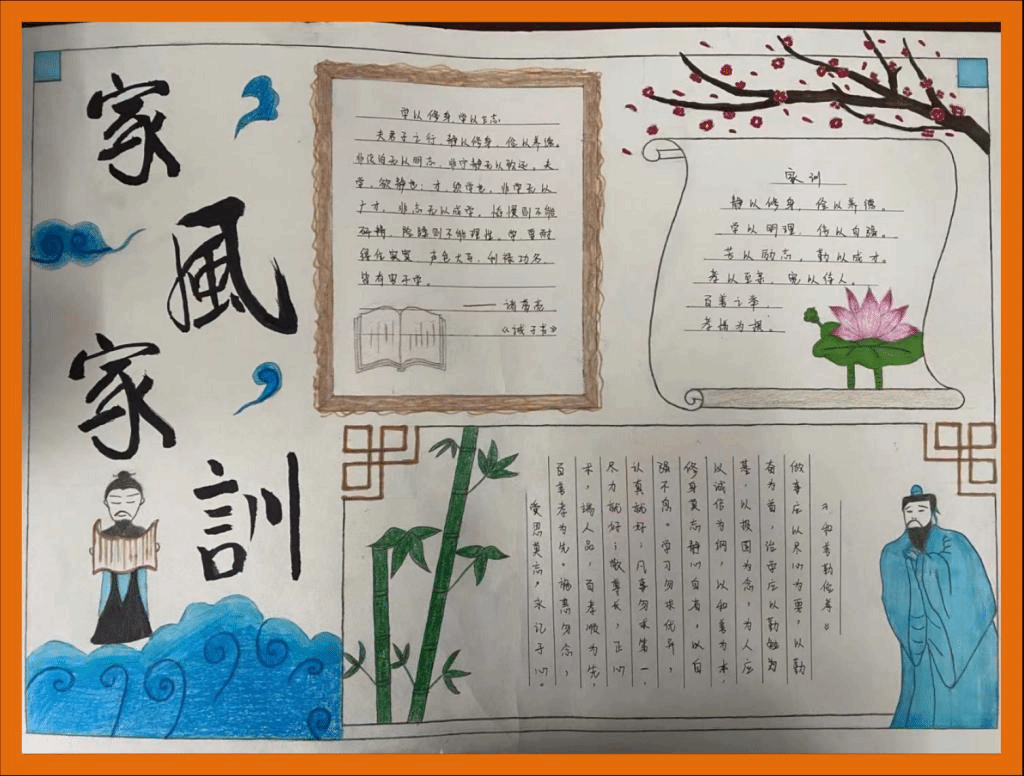 家風家訓
学以修身,学以立志
夫君子之行,静以修身,俭以养德。
非淡泊无以明志,非宁静无以致远。夫
学,欲静也;才,须学也,非学无以
广才,非志无以成学。慆慢则不能
研精,险躁则不能理性。
声色犬马,利禄功名,
皆有害于学。
—— 诸葛亮
《诫子书》
家训
静以修身,俭以养德。
学以明理,伟以自强。
苦以励志,勤以成才。
孝以至亲,宽以待人。
百善之举,
孝悌为根。
《和善勤俭孝》
做事应以尽心为要,以勤
奋为首,治学应以勤勉为
基,以报国为念,为人应
以诚信为纲,以和善为本,
修身莫忘静心自省,以自
强不息。学习勿求优异,
认真就好;凡事勿求第一,
尽力就好;敬尊长,正心
术,端人品,百孝顺为先,
百善孝为先。施惠勿念,
受恩莫忘,永记于心。